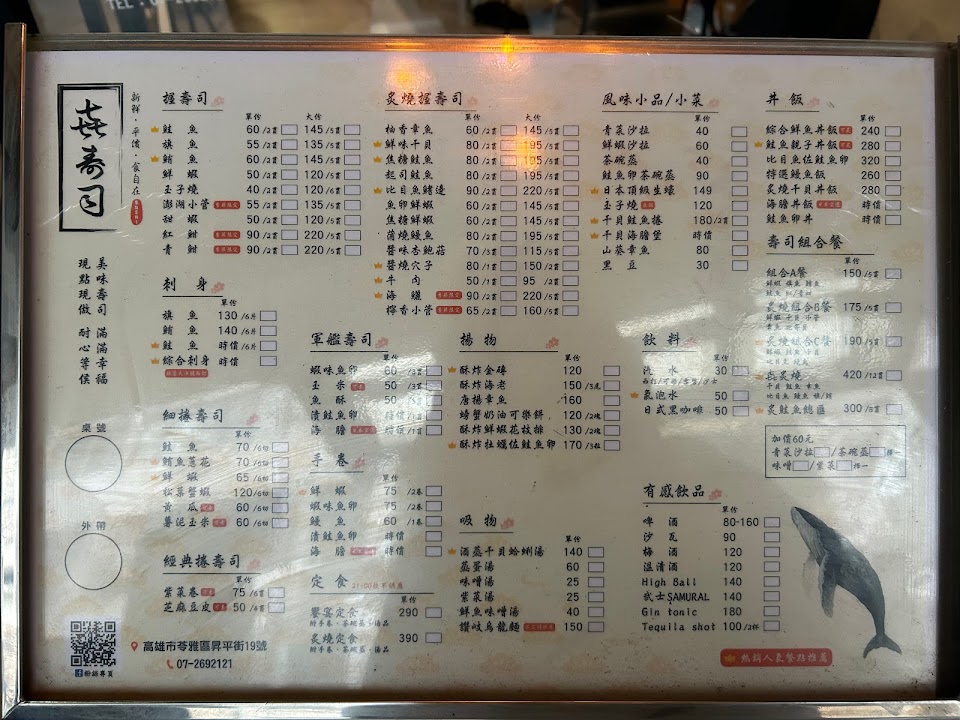 TEL:07-2692
㐂壽司
新鮮・平價・食自在
美味壽司 滿滿幸福
現點現做 耐心等候
桌號
外帶
粉絲專頁
高雄市苓雅區昇平街19號
07-2692121
握壽司
單份 大份
鮭魚 60/2貫 145/5貫
旗魚 55/2貫 135/5貫
鮪魚 60/2貫 145/5貫
鮮蝦 50/2貫 120/5貫
玉子燒 40/2貫 120/6貫
澎湖小管 55/2貫 135/5貫
甜蝦 50/2貫 120/5貫
紅魽 90/2貫 220/5貫
青魽 90/2貫 220/5貫
刺身
單份
旗魚 130/6片
鮪魚 140/6片
鮭魚 時價/6片
綜合刺身 時價
細捲壽司
單份
鮭魚 70/6切
鮪魚蔥花 70/6切
鮮蝦 65/6切
松葉蟹蝦 120/6切
黃瓜 60/6切
薯泥玉米 60/6切
經典捲壽司
單份
紫菜卷 75/6貫
芝麻豆皮 50/4貫
炙燒握壽司
單份 大份
柚香章魚 60/2貫 145/5貫
鮮味干貝 80/2貫 195/5貫
焦糖鮭魚 80/2貫 195/5貫
起司鮭魚 80/2貫 195/5貫
比目魚鰭邊 90/2貫 220/5貫
魚卵鮮蝦 60/2貫 145/5貫
焦糖鮮蝦 60/2貫 145/5貫
蒲燒鰻魚 80/2貫 195/5貫
醬味杏鮑菇 70/5貫 115/5貫
醬燒穴子 80/1貫 150/2貫
牛肉 50/1貫 95/2貫
海鱺 90/2貫 220/5貫
檸香小管 65/2貫 160/5貫
軍艦壽司
單份
蝦味魚卵 60/3貫
玉米 50/3貫
魚酥 50/3貫
漬鮭魚卵 時價/1貫
海膽 時價/1貫
手卷
單份
鮮蝦 75/2卷
蝦味魚卵 75/2卷
鰻魚 60/1卷
漬鮭魚卵 時價
海膽 時價
定食
單份
饗宴定食 290
附手卷、茶碗蒸、湯品
炙燒定食 390
附手卷、茶碗蒸、湯品
揚物
單份
酥炸金磚 120
酥炸海老 150/3尾
唐揚章魚 160
螃蟹奶油可樂餅 120/2塊
酥炸鮮蝦花枝排 130/2塊
酥炸拉蠟佐鮭魚卵 170/3粒
吸物
單份
酒蒸干貝蛤蜊湯 140
蒸蛋湯 60
味噌湯 25
紫菜湯 25
鮮魚味噌湯 40
讚岐烏龍麵 150
風味小品/小菜
單份
青菜沙拉 40
鮮蝦沙拉 60
茶碗蒸 40
鮭魚卵茶碗蒸 90
日本頂級生蠔 149
玉子燒 120
干貝鮭魚捲 180/2貫
干貝海膽堡 時價
山葵章魚 80
黑豆 30
飲料
單份
汽水 30
氣泡水 50
日式黑咖啡 50
有感飲品
單份
啤酒 80-160
沙瓦 90
梅酒 120
溫清酒 120
High Ball 140
武士SAMURAL 140
Gin tonic 180
Tequila shot 100/2杯
丼飯
單份
綜合鮮魚丼飯 240
鮭魚親子丼飯 280
比目魚佐鮭魚卵 320
特選鰻魚飯 260
炙燒干貝丼飯 280
海膽丼飯 時價
鮭魚卵丼 時價
壽司組合餐
單份
組合A餐 150/5貫
炙燒組合B餐 175/5貫
炙燒組合C餐 190/5貫
㐂炙燒 420/12貫
炙鮭魚總匯 300/8貫
加價60元
青菜沙拉/茶碗蒸擇一
味噌/紫菜擇一
熱銷人氣餐點推薦